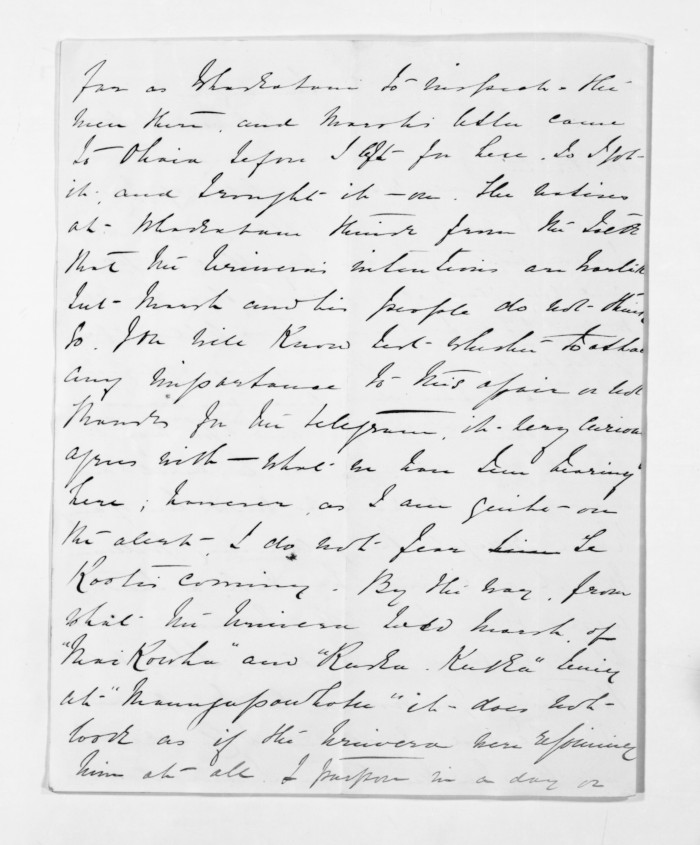 far as Whakatane to inspect the
men there, and Marsh's letter came
to Ohiwa before I left for here. So I got
it, and brought it on. The natives
at Whakatane think from the
that the Urewera's intentions are hostile
but Marsh and his people do not think
so. You will know best whether to attach
any importance to this affair or not
Thanks for the telegram, it very curious
agrees with what we have been hearing
here; however, as I am quite on
the alert, I do not fear Te
Kooti's coming. By the way, from
what the Urewera told Marsh, of
"Kooti's" and "Kereopa" being
at "Maungapowhatu" it does not
look as if the Urewera were rejoining
him at all. I purpose in a day or